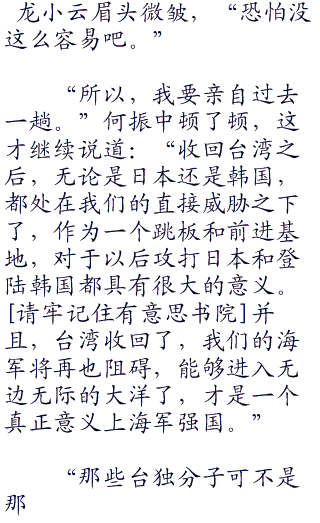 龙小云眉头微皱，“恐怕没
这么容易吧。”
“所以，我要亲自过去
一趟。”何振中顿了顿，这
才继续说道：“收回台湾之
后，无论是日本还是韩国，
都处在我们的直接威胁之下
了，作为一个跳板和前进基
地，对于以后攻打日本和登
陆韩国都具有很大的意义。
[请牢记住有意思书院]并
且，台湾收回了，我们的海
军将再也阻碍，能够进入无
边无际的大洋了，才是一个
真正意义上海军强国。”
“那些台独分子可不是
那